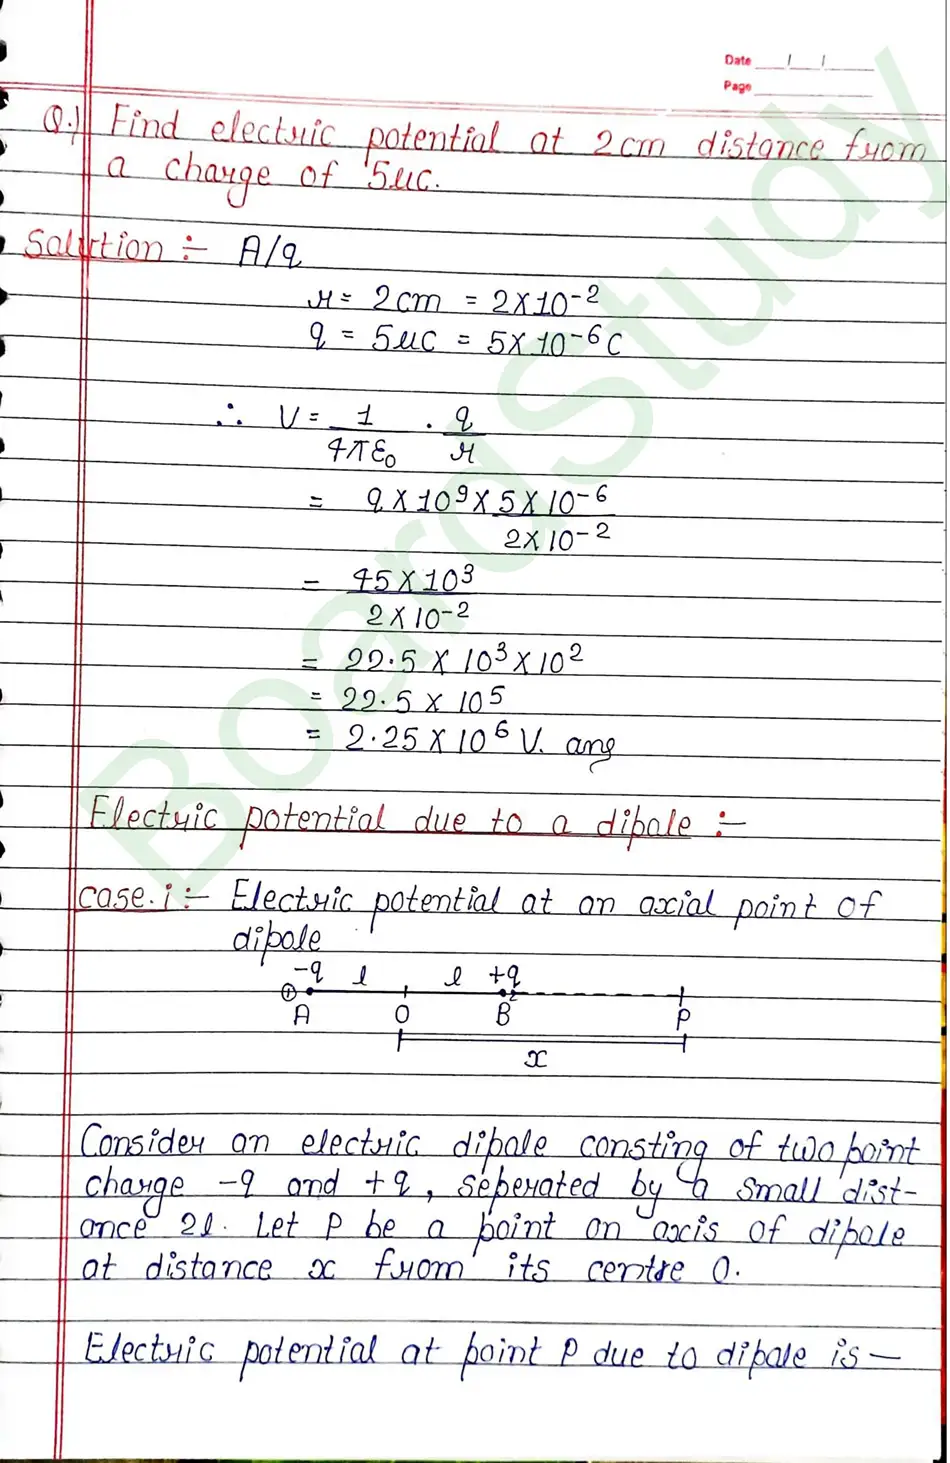 Date / /
Page
Q.) Find electric potential at 2cm distance from
a charge of 5μc.
Solution :- A/q
r = 2cm = 2×10⁻²
q = 5μC = 5×10⁻⁶C
∴ V = 1/4πε₀ · q/r
= 9×10⁹ × 5×10⁻⁶/2×10⁻²
= 45×10³/2×10⁻²
= 22.5 × 10³×10²
= 22.5 × 10⁵
= 2.25×10⁶ V. ans
Electric potential due to a dipole :-
case.i :- Electric potential at an axial point of
dipole
-q l l +q
A O B P
x
Consider an electric dipole consting of two point
charge -q and +q, seperated by a small dist-
ance 2l. Let P be a point on axis of dipole
at distance x from its centre O.
Electric potential at point P due to dipole is —
BoardStudy